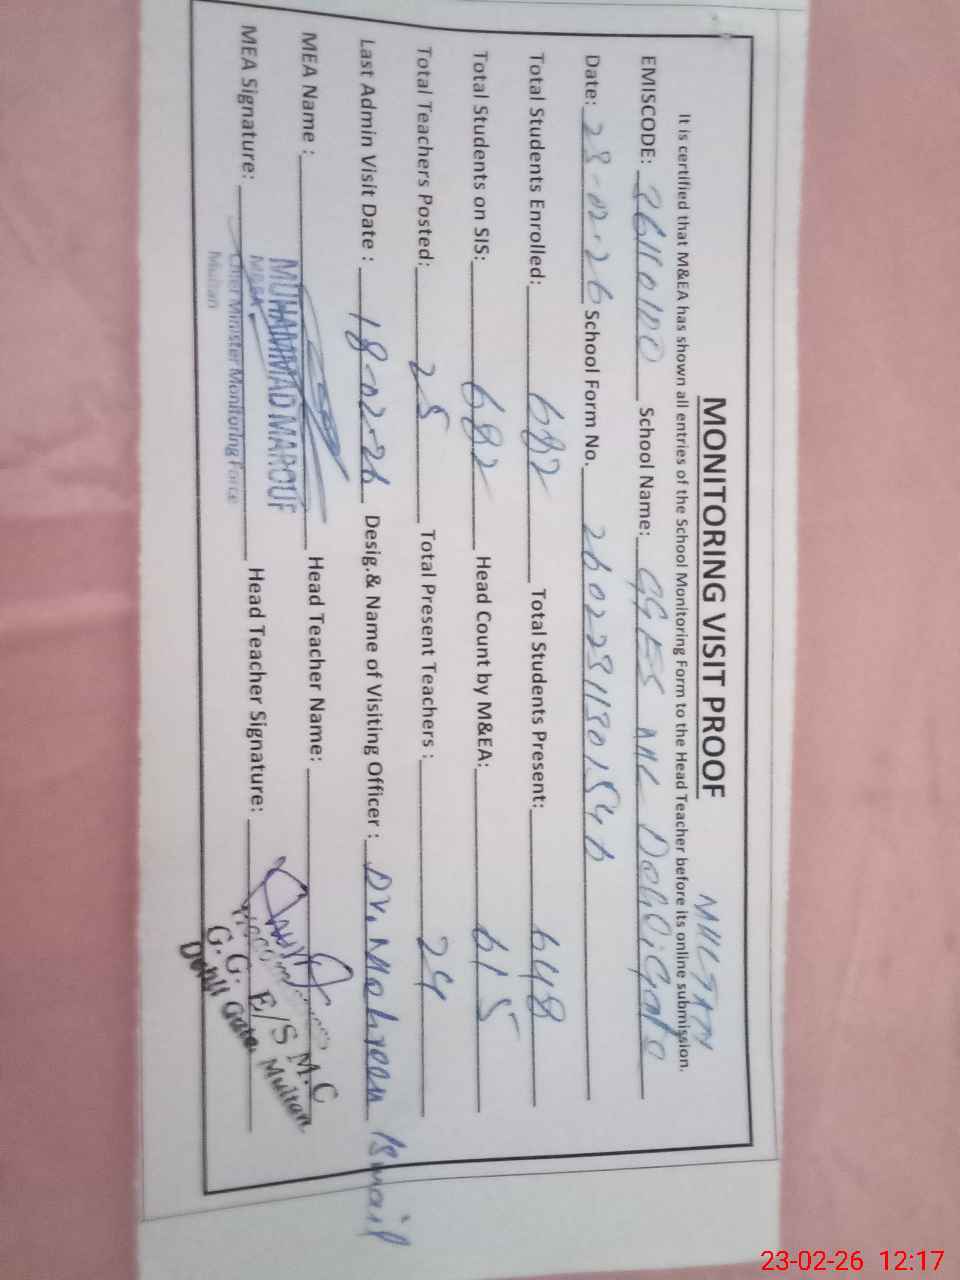 MONITORING VISIT PROOF MULTAN
It is certified that M&EA has shown all entries of the School Monitoring Form to the Head Teacher before its online submission.
EMISCODE: School Name: GGES MC Dehli Gate
Date: 23-02-26 School Form No. 26022311301546
Total Students Enrolled: 682 Total Students Present: 648
Total Students on SIS: 682 Head Count by M&EA: 615
Total Teachers Posted: 25 Total Present Teachers : 24
Last Admin Visit Date : 18-02-26 Desig.& Name of Visiting Officer : Dr. Mehreen Ismail
MEA Name : Head Teacher Name:
MUHAMMAD MAROUF
MEA Signature: Head Teacher Signature:
Chief Minister Monitoring Force
Multan
G.G. E/S M.C
Dehli Gate, Multan
23-02-26 12:17